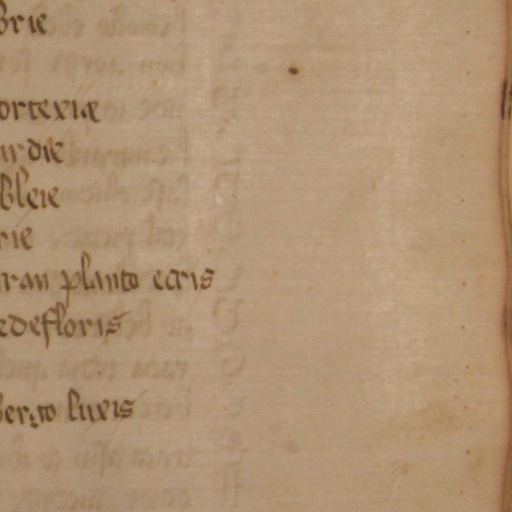 brie
ortexiæ
ardie
bleie
rie
ran planto ecris
edefloris
berto luxis